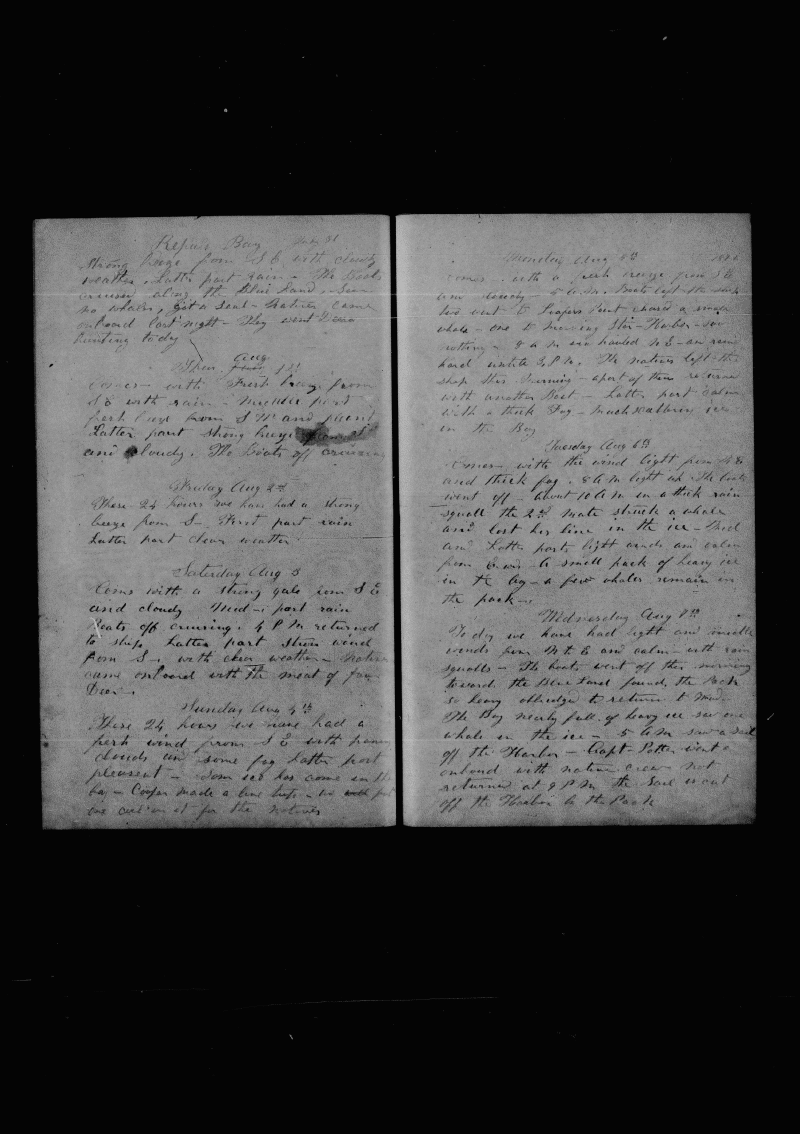 Repulse Bay July 31
Strong breeze from S E with cloudy
weather. Latter part rain - The Boats
cruising along the Blue Land. Seen
no whales, got a Seal - Natives came
onboard last night - They went Deer
hunting to day
Thur Aug 1st
Comes with Fresh breeze from
S E with rain. Middle part
fresh breeze from S W and
Latter part strong breeze
and cloudy. The Boats off cruising
Friday Aug 2nd
These 24 hours we have had a strong
breeze from S. First part rain
Latter part clear weather
Saturday Aug 3
Coms with a strong gale from S E
and cloudy Mid- part rain
Boats off cruising. 4 P M returned
to ship. Latter part Strong wind
from S. with clear weather - Natives
came onboard with the meat of four
Deer -
Sunday Aug 4th
These 24 hours we have had a
fresh wind from S E with passing
clouds and some fog Latter part
pleasent - Som ice has come in the
bay - Cooper made a
for the natives
Monday Aug 5th
Comes with a fresh breeze from S E
and cloudy - 5 A.M. Boats left the ship
two went to Point chased a
whale - one to Harbor - saw
nothing - 8 A M hauled N E - and rain
hard untill 4 P M. The natives left the
ship this morning - apart of them returned
with another Boat - Latter part Calm
with a thick Fog - Much ice
in the Bay
Tuesday Aug 6th
Comes with the wind light from N E
and thick fog. 8 A M light up The boats
went off - about 10 A M in a thick rain
squall the 2nd Mate struck a whale
and lost his line in the ice - Mid
and Latter parts light winds and calm
from A small pack of heavy ice
in the bay - a few whales remain in
the pack -
Wednesday Aug
To day we have had light and
winds from N & E and calm - with rain
squalls - The boats went off this morning
toward the Blue Land found the Pack
so heavy oblidge to return to
The Bay nearly full of heavy ice saw one
whale in the ice - 5 A M saw a Sail
off the Harbor - Capt Potter went
onboard with native crew not
returned at 9 P M the Sail went
off the Harbor to the Pack